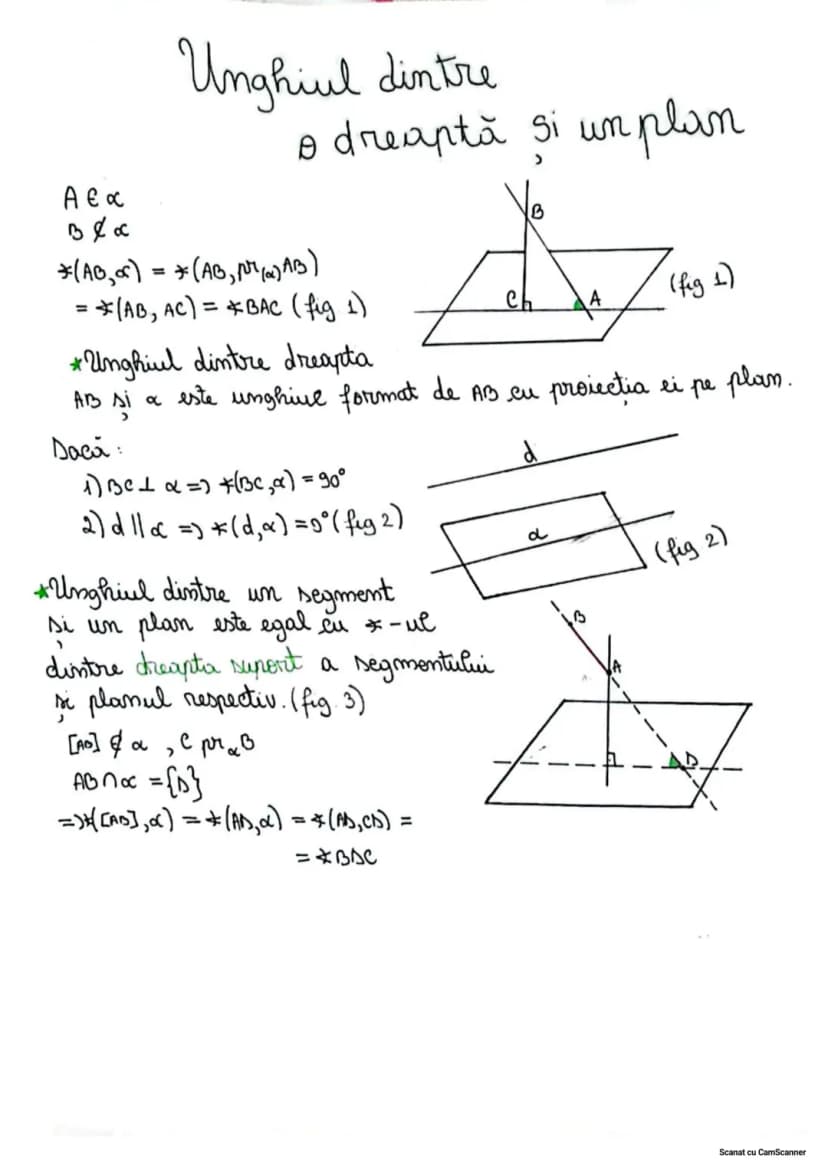 Unghiul dintre
o dreaptă și un plan
A ∈ α
B ∉ α
∢(AB,α) = ∢(AB, pr(α) AB)
= ∢(AB, AC) = ∢BAC (fig 1)
B
C
A
(fig 1)
*Unghiul dintre dreapta
AB și α este unghiul format de AB cu proiecția ei pe plan.
Dacă:
1) BC ⊥ α => ∢(BC,α) = 90°
2) d || α => ∢(d,α) = 0° (fig 2)
d
α
(fig 2)
*Unghiul dintre un segment
și un plan este egal cu ∢-ul
dintre dreapta suport a segmentului
și planul respectiv. (fig. 3)
[AB] ⊄ α , C pr α B
AB ∩ α = {D}
=> ∢([AB],α) = ∢(AD,α) = ∢(AD,CD) =
= ∢BDC
B
A
D
Scanat cu CamScanner